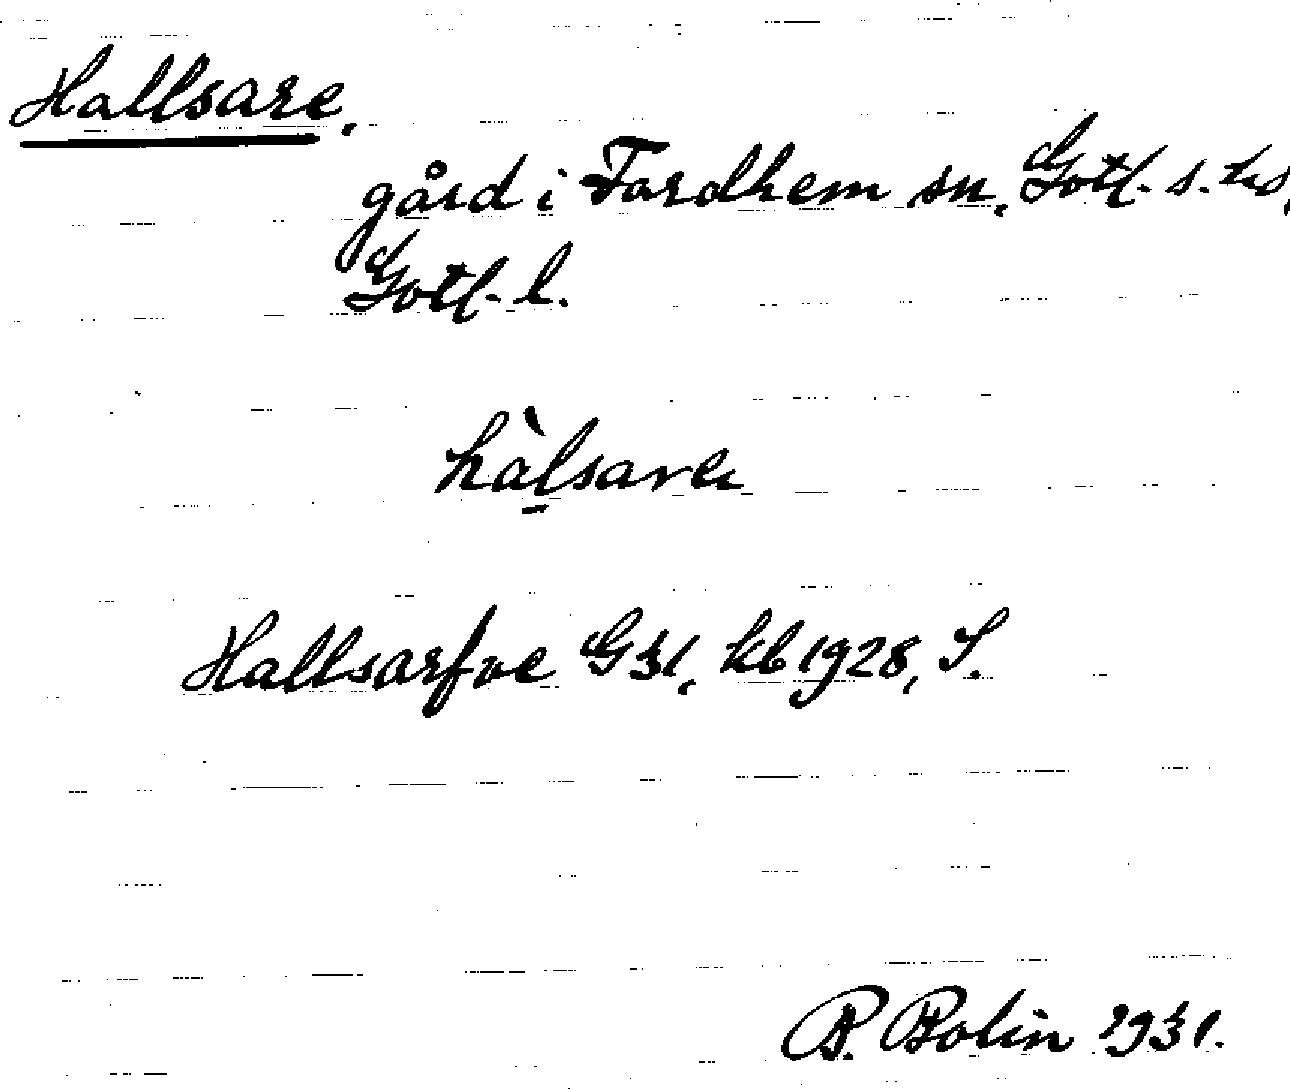 Hallsare,
gård i Fardhem sn, Gotl. s. hd,
Gotl. l.
hàlsarė
Hallsarfve G31, kb 1928, S.
B. Bolin 1931.